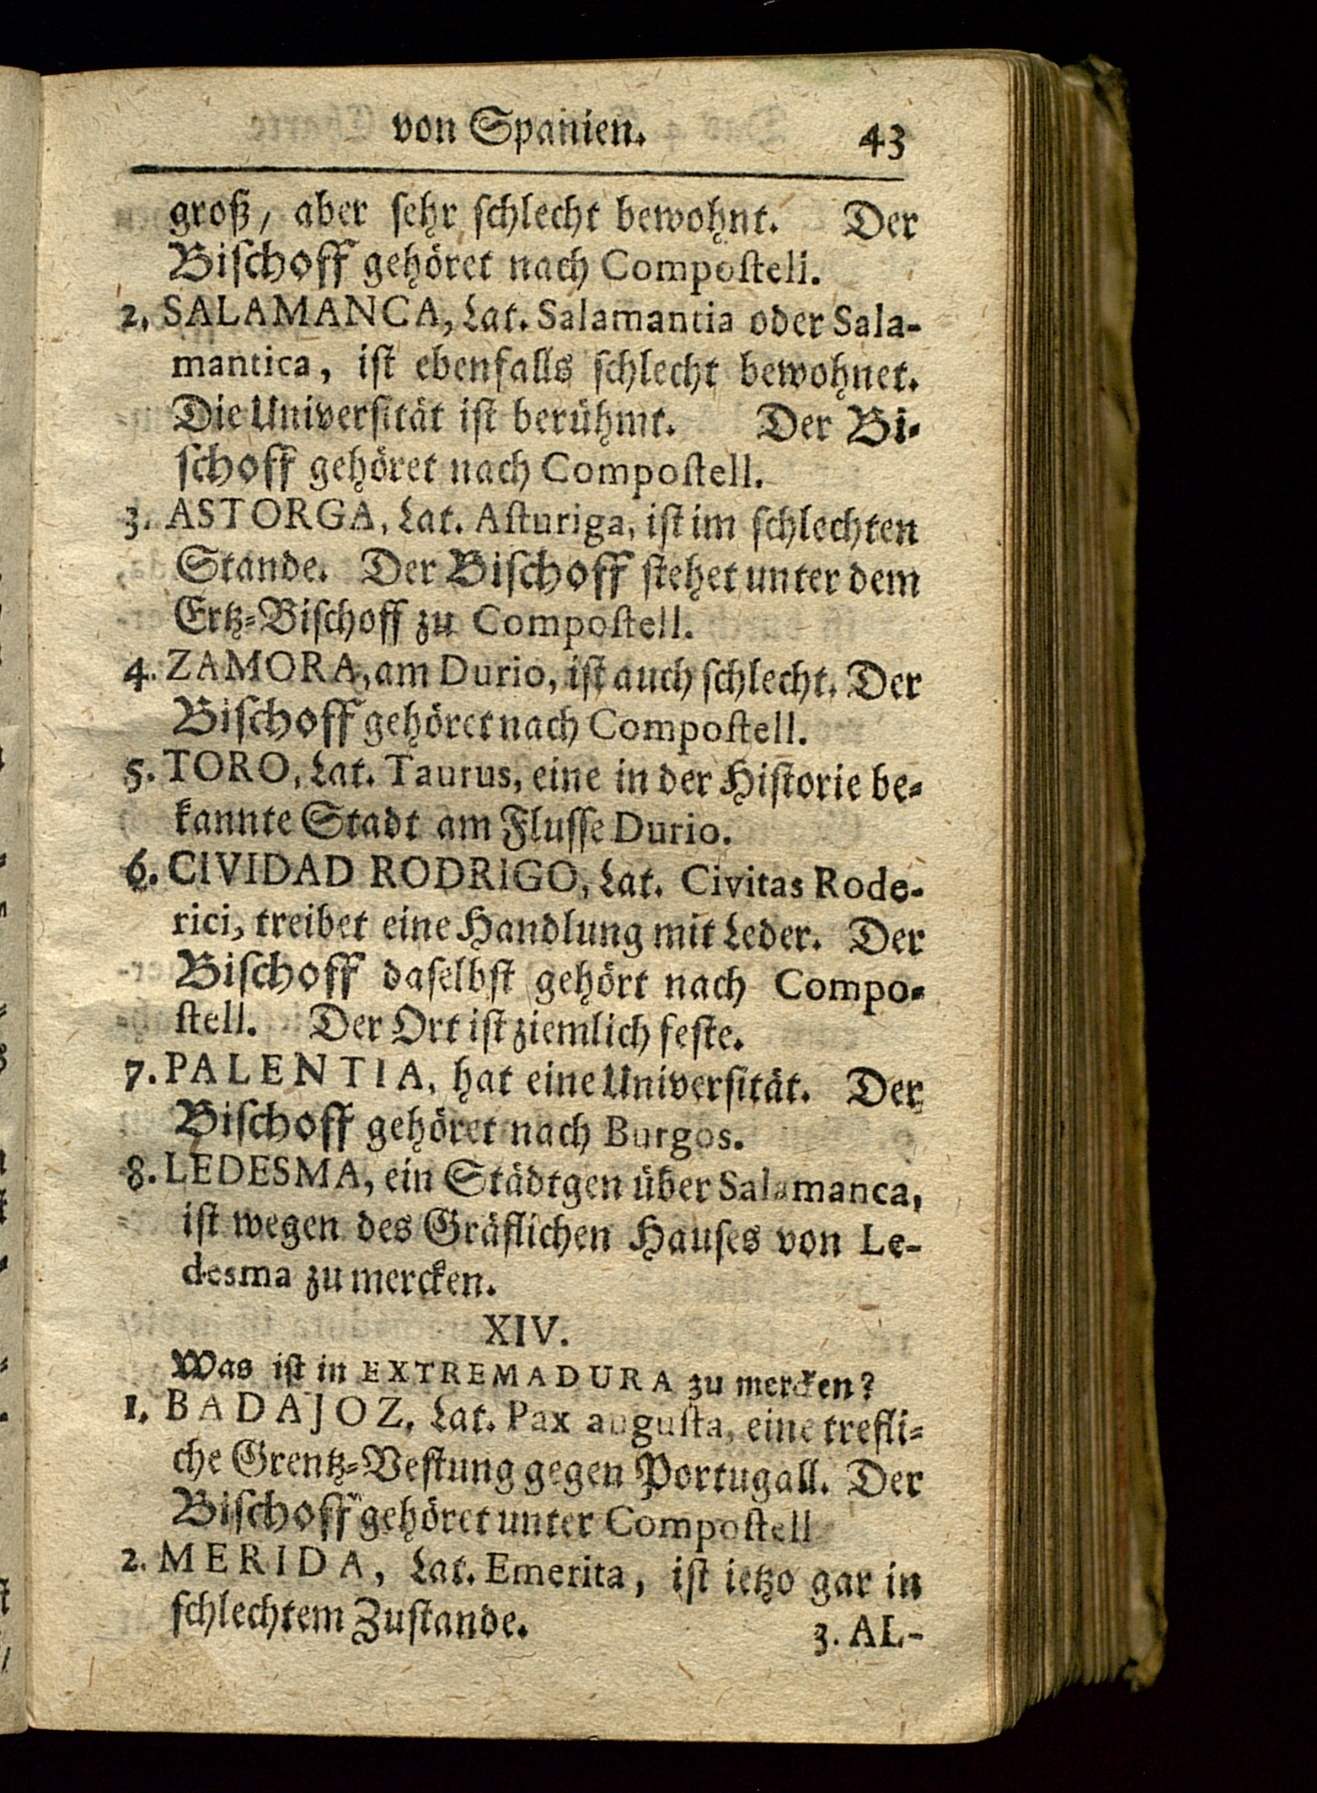 von Spanien. 43
groß, aber sehr schlecht bewohnt. Der
Bischoff gehöret nach Compostell.
2. SALAMANCA, Lat. Salamantia oder Sala-
mantica, ist ebenfalls schlecht bewohnet.
Die Universität ist berühmt. Der Bi-
schoff gehöret nach Compostell.
3. ASTORGA, Lat. Asturiga, ist im schlechten
Stande. Der Bischoff stehet unter dem
Ertz-Bischoff zu Compostell.
4. ZAMORA, am Durio, ist auch schlecht. Der
Bischoff gehöret nach Compostell.
5. TORO, Lat. Taurus, eine in der Historie be-
kannte Stadt am Flusse Durio.
6. CIVIDAD RODRIGO, Lat. Civitas Rode-
rici, treibet eine Handlung mit Leder. Der
Bischoff daselbst gehört nach Compo-
stell. Der Ort ist ziemlich feste.
7. PALENTIA, hat eine Universität. Der
Bischoff gehöret nach Burgos.
8. LEDESMA, ein Städtgen über Salamanca,
ist wegen des Gräflichen Hauses von Le-
desma zu mercken.
XIV.
Was ist in EXTREMADURA zu mercken?
1. BADAJOZ, Lat. Pax augusta, eine trefli-
che Grentz-Vestung gegen Portugall. Der
Bischoff gehöret unter Compostell
2. MERIDA, Lat. Emerita, ist ietzo gar in
schlechtem Zustande.
3. AL-